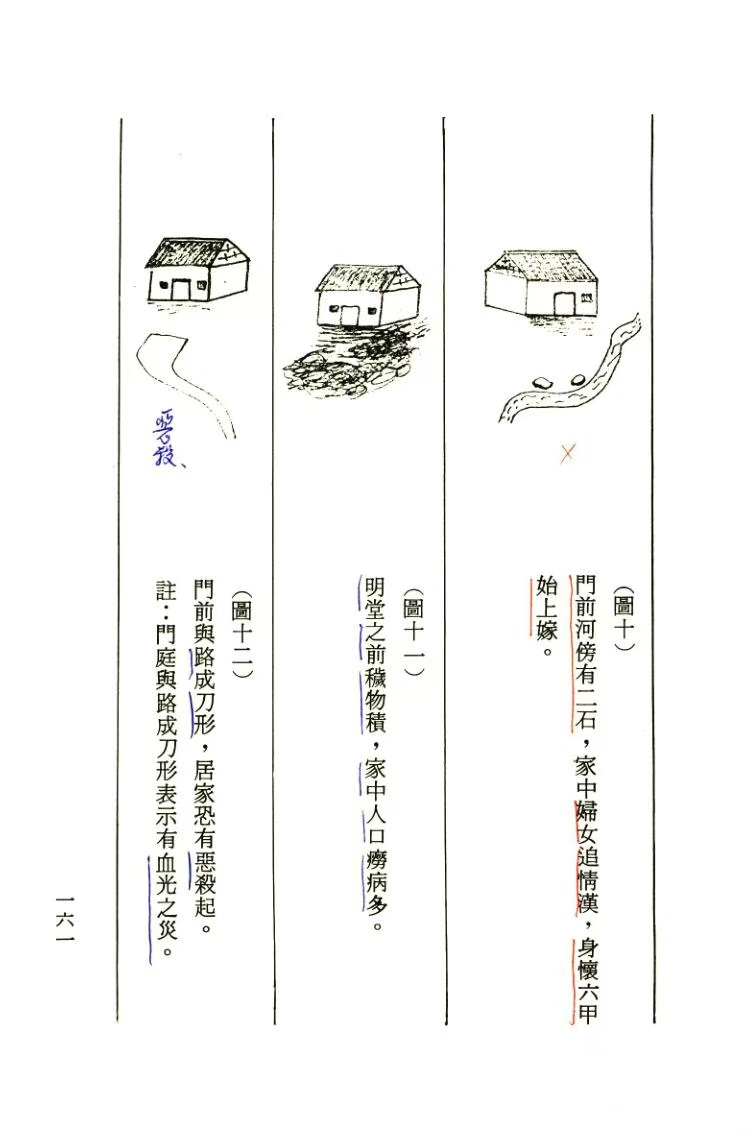 （圖十）
門前河傍有二石，家中婦女追情漢，身懷六甲
始上嫁。
（圖十一）
明堂之前穢物積，家中人口癆病多。
（圖十二）
門前與路成刀形，居家恐有惡殺起。
註：門庭與路成刀形表示有血光之災。
惡殺、
一六一